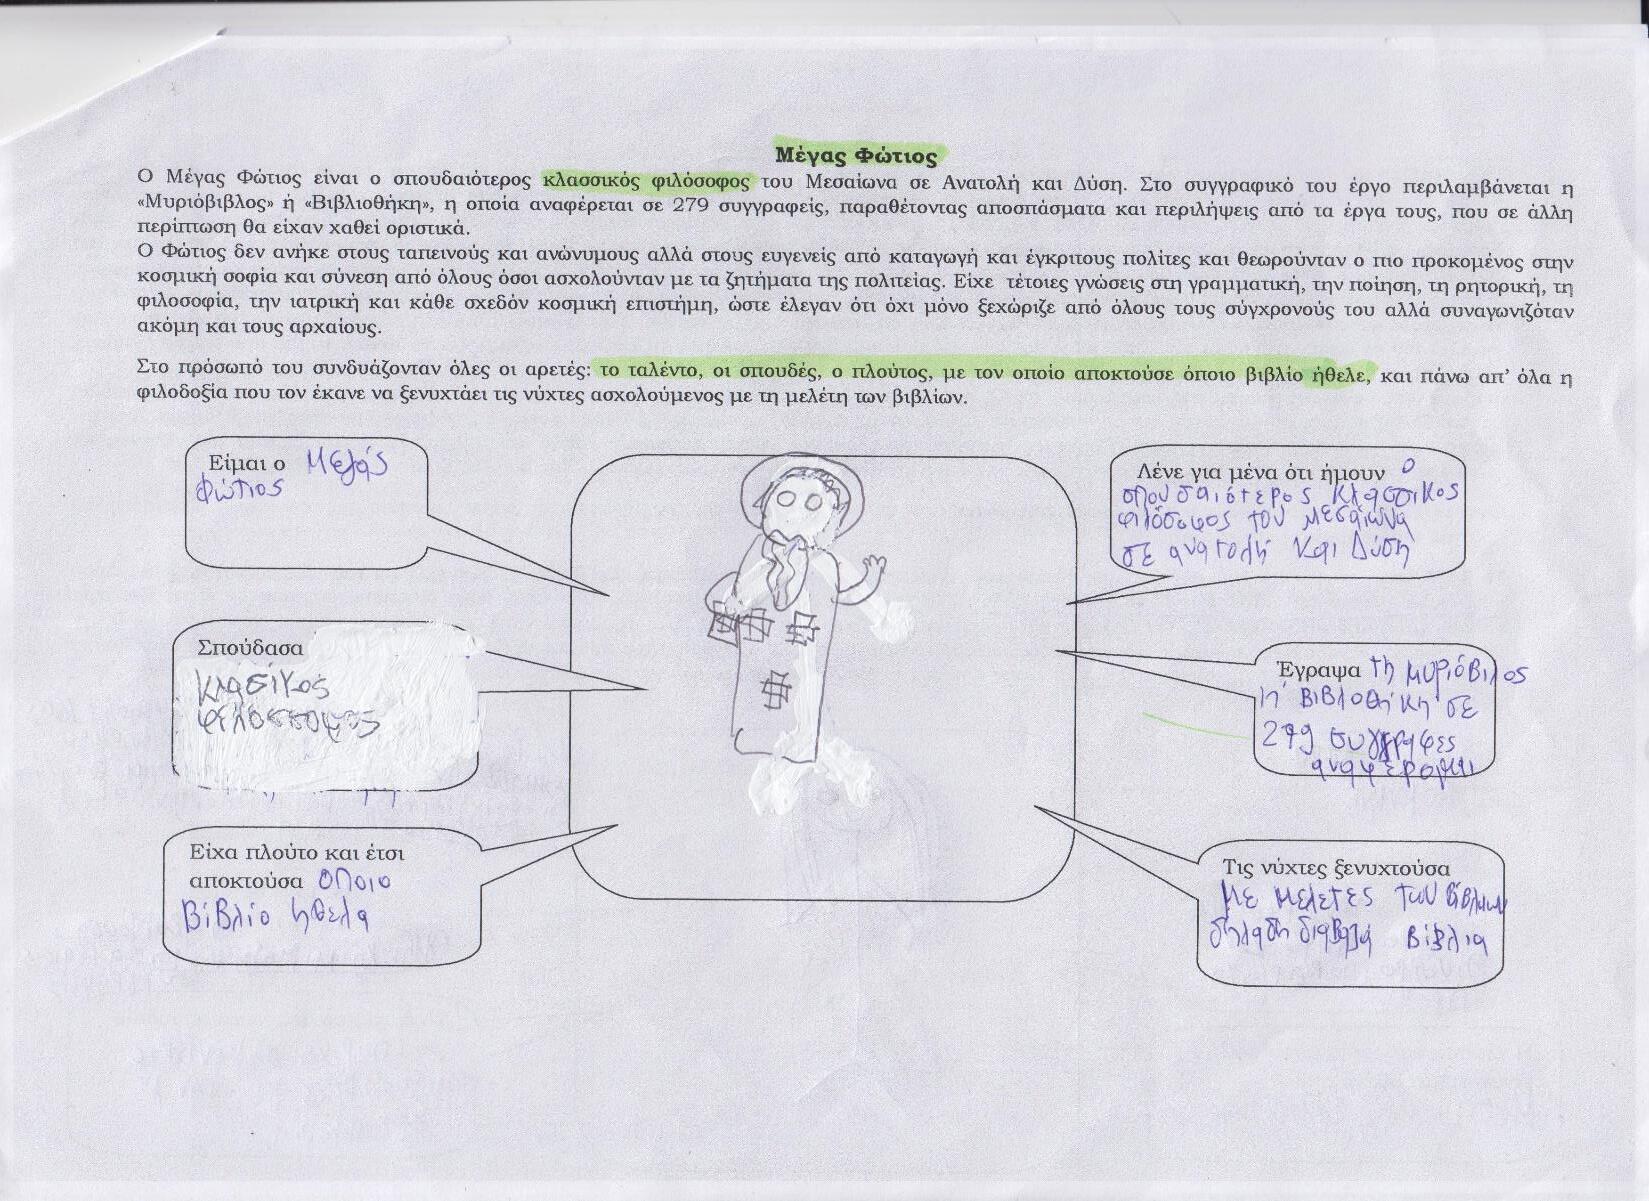 Μέγας Φώτιος
Ο Μέγας Φώτιος είναι ο σπουδαιότερος κλασσικός φιλόσοφος του Μεσαίωνα σε Ανατολή και Δύση. Στο συγγραφικό του έργο περιλαμβάνεται η
«Μυριόβιβλος» ή «Βιβλιοθήκη», η οποία αναφέρεται σε 279 συγγραφείς, παραθέτοντας αποσπάσματα και περιλήψεις από τα έργα τους, που σε άλλη
περίπτωση θα είχαν χαθεί οριστικά.
Ο Φώτιος δεν ανήκε στους ταπεινούς και ανώνυμους αλλά στους ευγενείς από καταγωγή και έγκριτους πολίτες και θεωρούνταν ο πιο προκομένος στην
κοσμική σοφία και σύνεση από όλους όσοι ασχολούνταν με τα ζητήματα της πολιτείας. Είχε τέτοιες γνώσεις στη γραμματική, την ποίηση, τη ρητορική, τη
φιλοσοφία, την ιατρική και κάθε σχεδόν κοσμική επιστήμη, ώστε έλεγαν ότι όχι μόνο ξεχώριζε από όλους τους σύγχρονούς του αλλά συναγωνιζόταν
ακόμη και τους αρχαίους.
Στο πρόσωπό του συνδυάζονταν όλες οι αρετές: το ταλέντο, οι σπουδές, ο πλούτος, με τον οποίο αποκτούσε όποιο βιβλίο ήθελε, και πάνω απ' όλα η
φιλοδοξία που τον έκανε να ξενυχτάει τις νύχτες ασχολούμενος με τη μελέτη των βιβλίων.
Είμαι ο Μεγάς
Φώτιος
Σπούδασα
κλασίκος
φιλοσσοφος
Είχα πλούτο και έτσι
αποκτούσα οποιο
Βίβλίο ήθελα
Λένε για μένα ότι ήμουν ο
σπουσαιότερος κλασσικος
φιλόσοφος του μεσαίωνα
σε ανατολή και Δύση
Έγραψα τη μυριόβιλος
ή βιβλοθήκη σε
279 συγγραφες
αναφέρομαι
Τις νύχτες ξενυχτούσα
με μελετες των βίβλιων
δηλαδη διαβαζα βίβλια